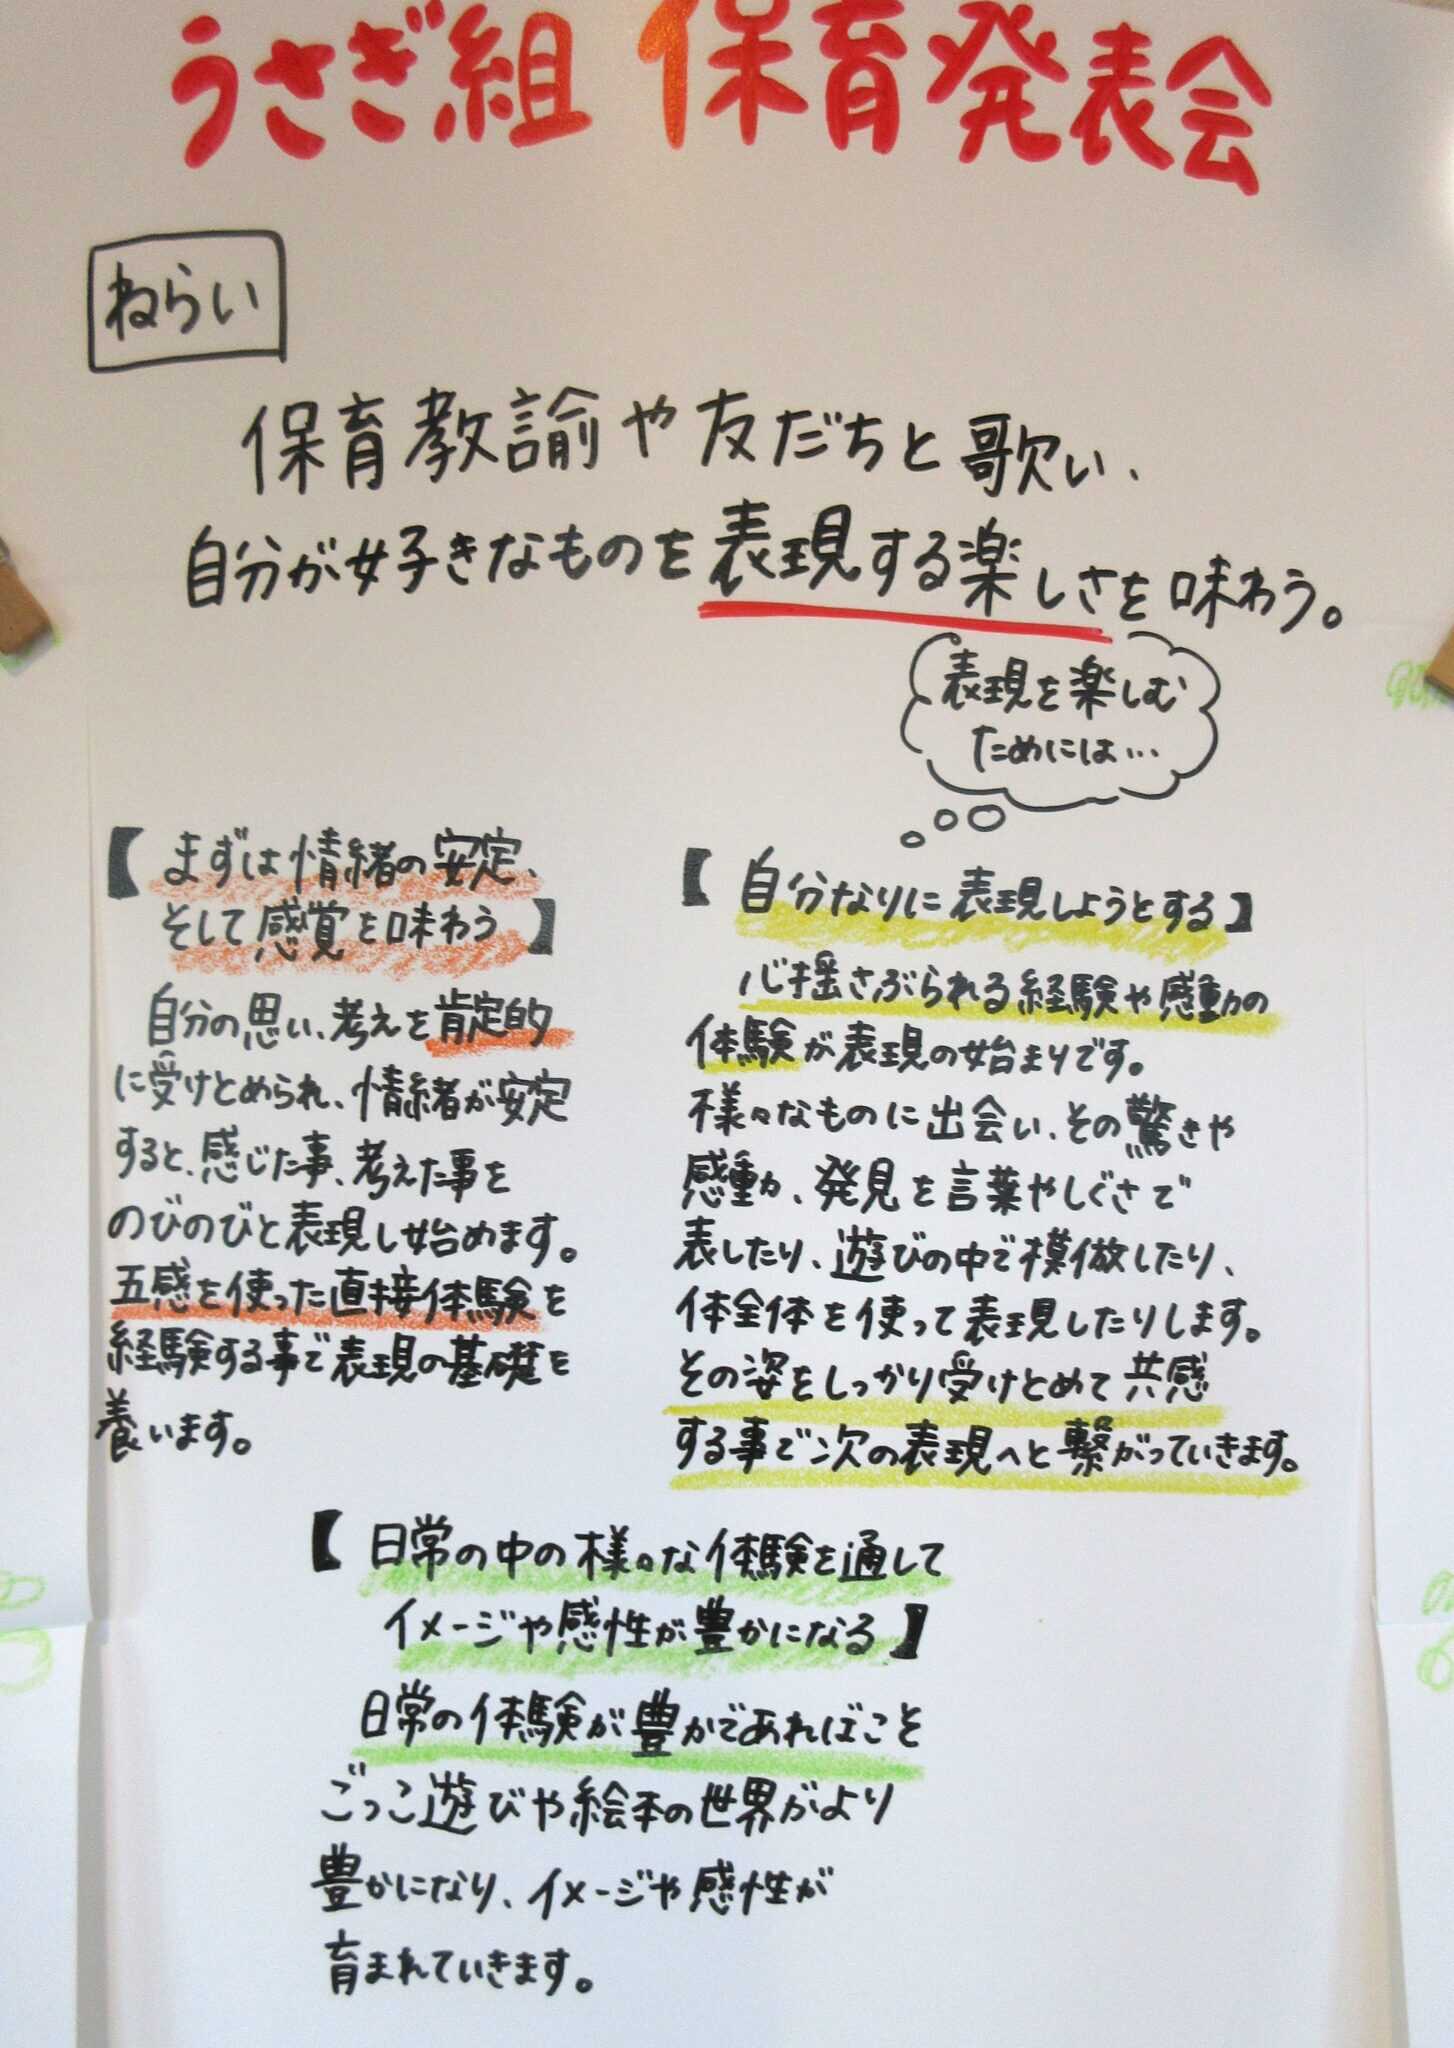 うさぎ組 保育発表会
ねらい
保育教諭や友だちと歌い、
自分が好きなものを表現する楽しさを味わう。
表現を楽しむ
ためには…
【まずは情緒の安定、
そして感覚を味わう】
自分の思い、考えを肯定的
に受けとめられ、情緒が安定
すると、感じた事、考えた事を
のびのびと表現し始めます。
五感を使った直接体験を
経験する事で表現の基礎を
養います。
【自分なりに表現しようとする】
心揺さぶられる経験や感動の
体験が表現の始まりです。
様々なものに出会い、その驚きや
感動、発見を言葉やしぐさで
表したり、遊びの中で模倣したり、
体全体を使って表現したりします。
その姿をしっかり受けとめて共感
する事で次の表現へと繋がっていきます。
【日常の中の様々な体験を通して
イメージや感性が豊かになる】
日常の体験が豊かであればこそ
ごっこ遊びや絵本の世界がより
豊かになり、イメージや感性が
育まれていきます。